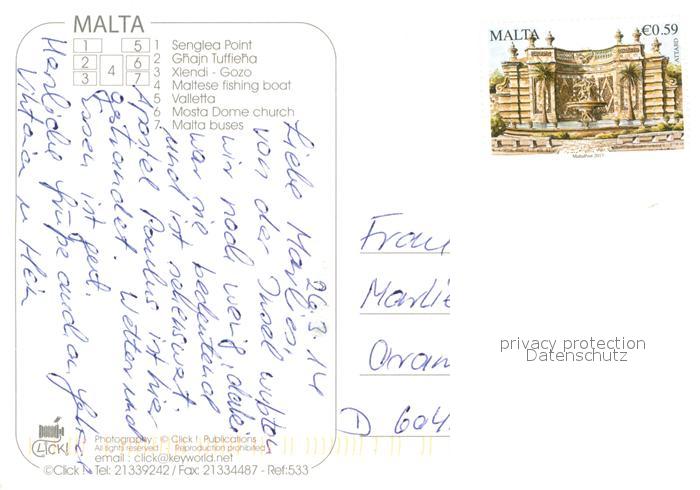 MALTA
1 Senglea Point
2 Għajn Tuffieħa
3 Xlendi - Gozo
4 Maltese fishing boat
5 Valletta
6 Mosta Dome church
7 Malta buses
1 5
2 6
3 4 7
MALTA €0.59
ATTARD
MaltaPost 2013
26.3.14
Liebe Marlies,
von der Insel wußten
wir noch wenig, dabei
war sie bedeutend
und ist sehenswert.
Apostel Paulus ist hier
gestrandet. Wetter und
Essen ist gut.
Herzliche Grüße auch an
Viktoria u.
Frau
Marlie
D 604
privacy protection
Datenschutz
CLICK!
Photography : © Click ! Publications
All rights reserved Reproduction prohibited
email : click@keyworld.net
©Click ! Tel: 21339242 / Fax: 21334487 - Ref:533